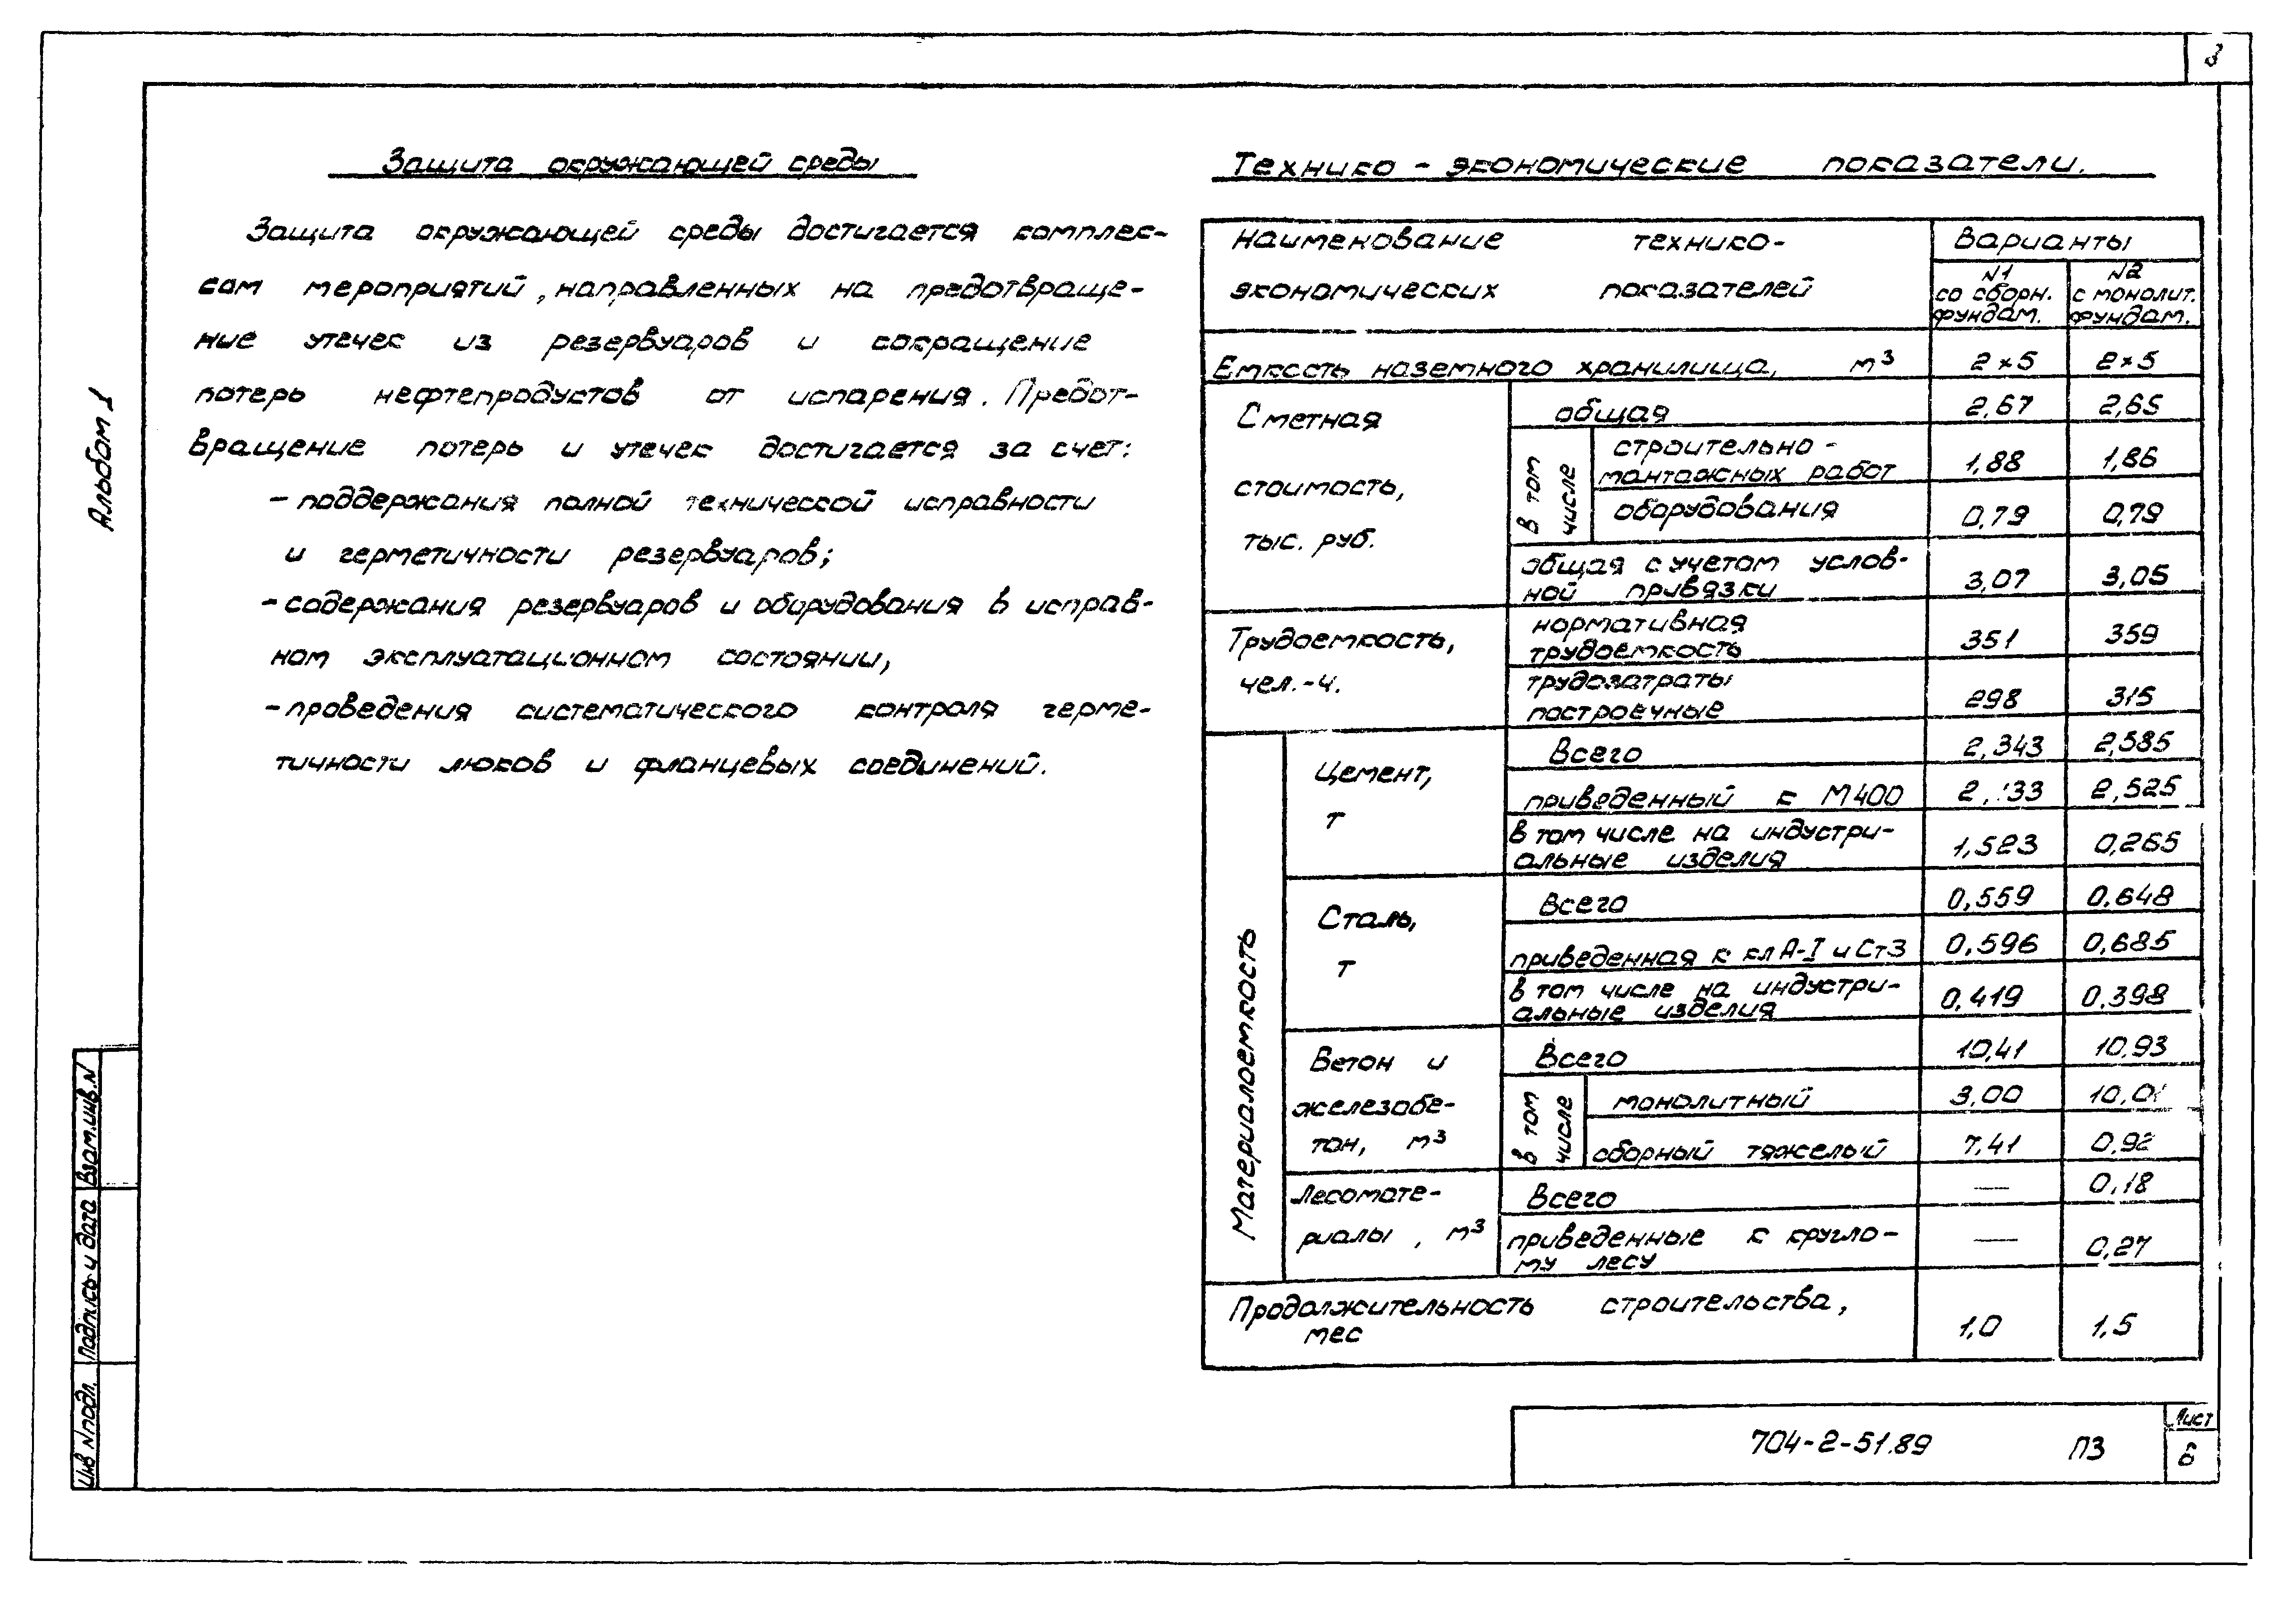 3
Альбом 1
Защита окружающей среды
Защита окружающей среды достигается комплек-
сом мероприятий, направленных на предотвраще-
ние утечек из резервуаров и сокращение
потерь нефтепродуктов от испарения. Предот-
вращение потерь и утечек достигается за счет:
- поддержания полной технической исправности
и герметичности резервуаров;
- содержания резервуаров и оборудования в исправ-
ном эксплуатационном состоянии,
- проведения систематического контроля герме-
тичности люков и фланцевых соединений.
Технико - экономические показатели.
Наименование технико-
экономических показателей
Варианты
N1
со сборн.
фундам.
N2
с монолит.
фундам.
Емкость наземного хранилища, м³ 2×5 2×5
Сметная
стоимость,
тыс. руб.
общая 2,67 2,65
в том
числе
строительно -
монтажных работ 1,88 1,86
оборудования 0,79 0,79
общая с учетом услов-
ной привязки 3,07 3,05
Трудоемкость,
чел.-ч.
нормативная
трудоемкость 351 359
трудозатраты
построечные 298 315
Материалоемкость
Цемент,
т
Всего 2,343 2,585
приведенный к М400 2,525
в том числе на индустри-
альные изделия 1,523 0,265
Сталь,
т
Всего 0,559 0.648
приведенная к кл А-I и Ст3 0,596 0,685
в том числе на индустри-
альные изделия 0,419 0.398
Бетон и
железобе-
тон, м³
Всего 10,41 10,93
в том
числе
монолитный 3,00 10,01
сборный тяжелый 7,41 0,92
Лесомате-
риалы, м³
Всего — 0,18
приведенные к кругло-
му лесу — 0,27
Продолжительность строительства,
мес 1,0 1,5
704-2-51.89 ПЗ
Лист
6
Взам.инв.N
Подпись и дата
Инв N подл.